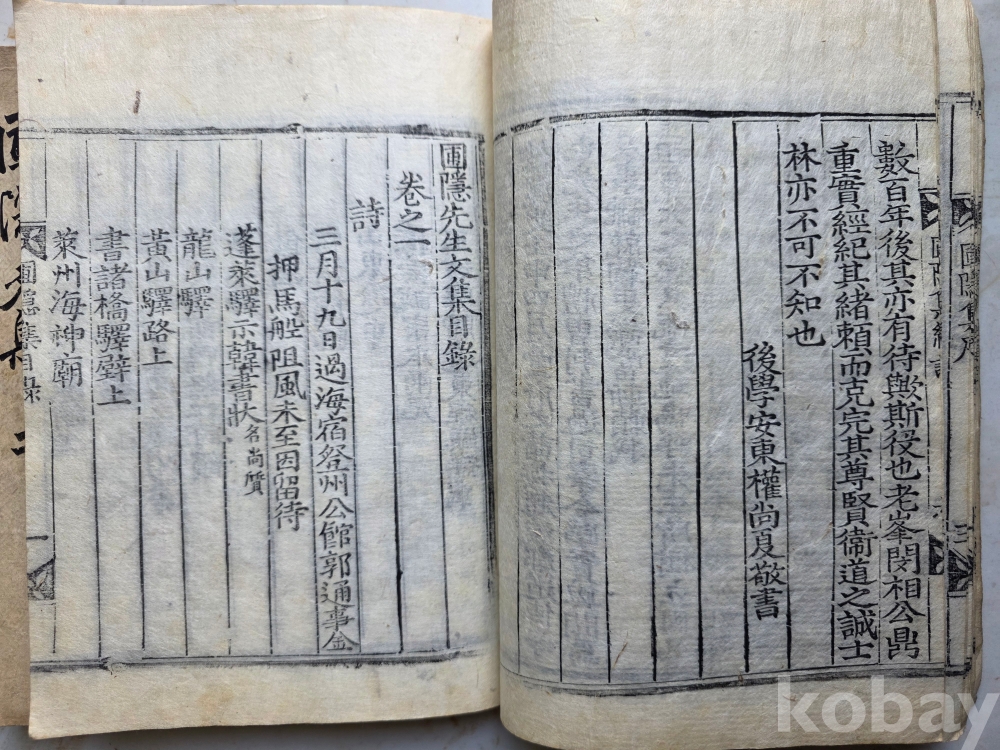 數百年後其亦有待歟斯役也老峯閔相公鼎
重實經紀其緖賴而克完其尊賢衞道之誠士
林亦不可不知也
後學安東權尙夏敬書
圃隱先生文集目錄
卷之一
詩
三月十九日過海宿登州公館郭通事金
押馬船阻風未至因留待
蓬萊驛示韓書狀名尙質
龍山驛
黃山驛路上
書諸橋驛壁上
萊州海神廟
圃隱集目錄
一
kobay